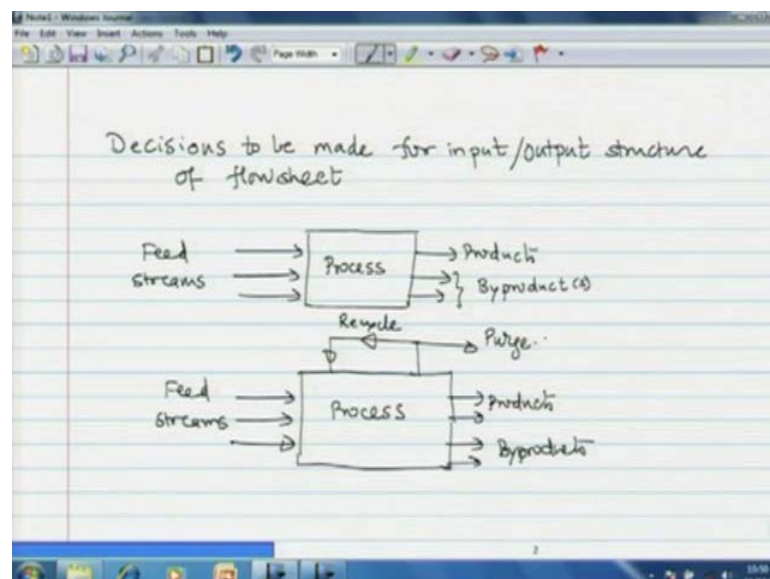 Note1 - Windows Journal
File Edit View Insert Actions Tools Help
Page Width
Decisions to be made for input/output structure
of flowsheet
Feed
streams
Process
Products
Byproduct(s)
Recycle
Purge..
Feed
streams
Process
Products
Byproducts
2
10:50